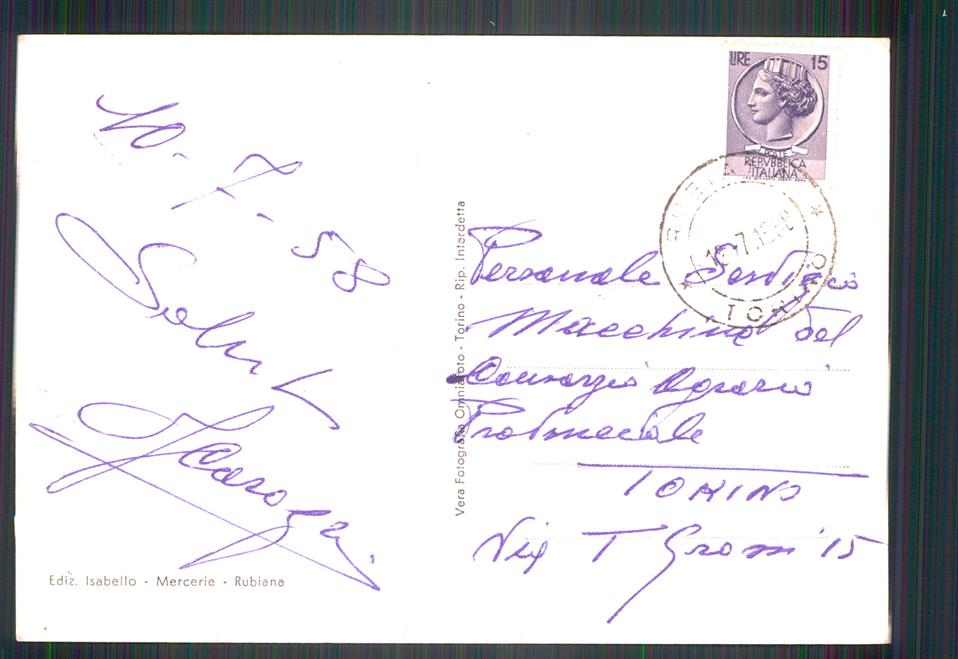 10-7-58
Saluti
Ediz. Isabello - Mercerie - Rubiana
Vera Fotografia Omniafoto - Torino - Rip. Interdetta
LIRE 15
POSTE
REPVBBLICA
ITALIANA
RUBIANA
TORINO
Personale Servizio
Macchine del
Consorzio Agrario
Provinciale
TORINO
Via T Grossi 15